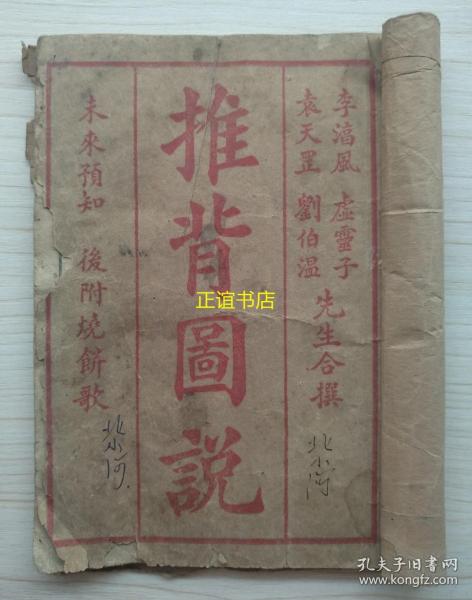 李滈風 虛靈子
袁天罡 劉伯溫
先生合撰
推背圖説
未來預知 後附燒餅歌
北小河
北小河
正谊书店
孔夫子旧书网
www.kongfz.com